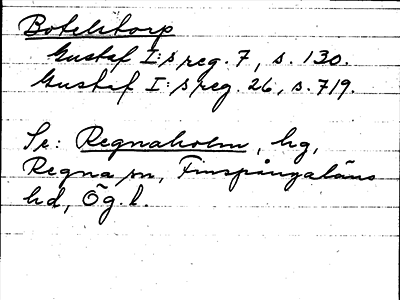 Botelstorp
Gustaf I:s reg. 7, s. 130.
Gustaf I: s reg. 26, s. 719.
Se: Regnaholm, hg,
Regna sn, Finspångaläns
hd, Ög. l.